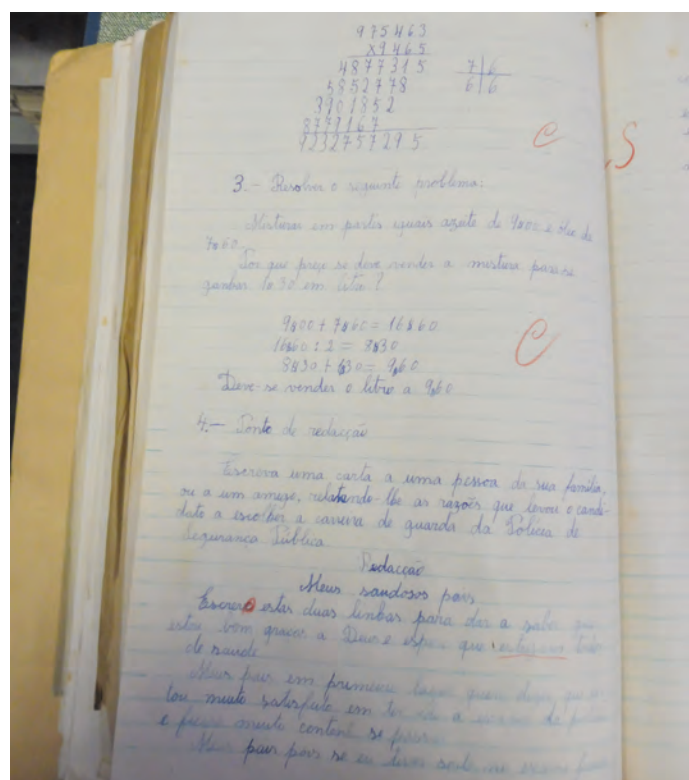 975463
x9465
4877315
5852778
3901852
8779167
9232757295
7 6
6 6
C
S
3.- Resolver o seguinte problema:
Misturas em partes iguais azeite de 9$00 e óleo de
7$60.
Por que preço se deve vender a mistura para se
ganhar 1$30 em litro?
9$00 + 7$60 = 16$60
16$60 : 2 = 8$30
8$30 + 1$30 = 9$60
C
Deve-se vender o litro a 9$60
4.- Ponto de redacção
Escreva uma carta a uma pessoa da sua família,
ou a um amigo, relatando-lhe as razões que levou o candi-
dato a escolher a carreira de guarda da Polícia de
Segurança Pública
Redacção
Meus saudosos pais
Escrevo estas duas linhas para dar a saber que
estou bom graças a Deus e espero que todos
de saude
Meus pais em primeiro lugar quero dizer que es-
tou muito satisfeito em ter a de
e muito contente se
Meus pais pois se eu exame